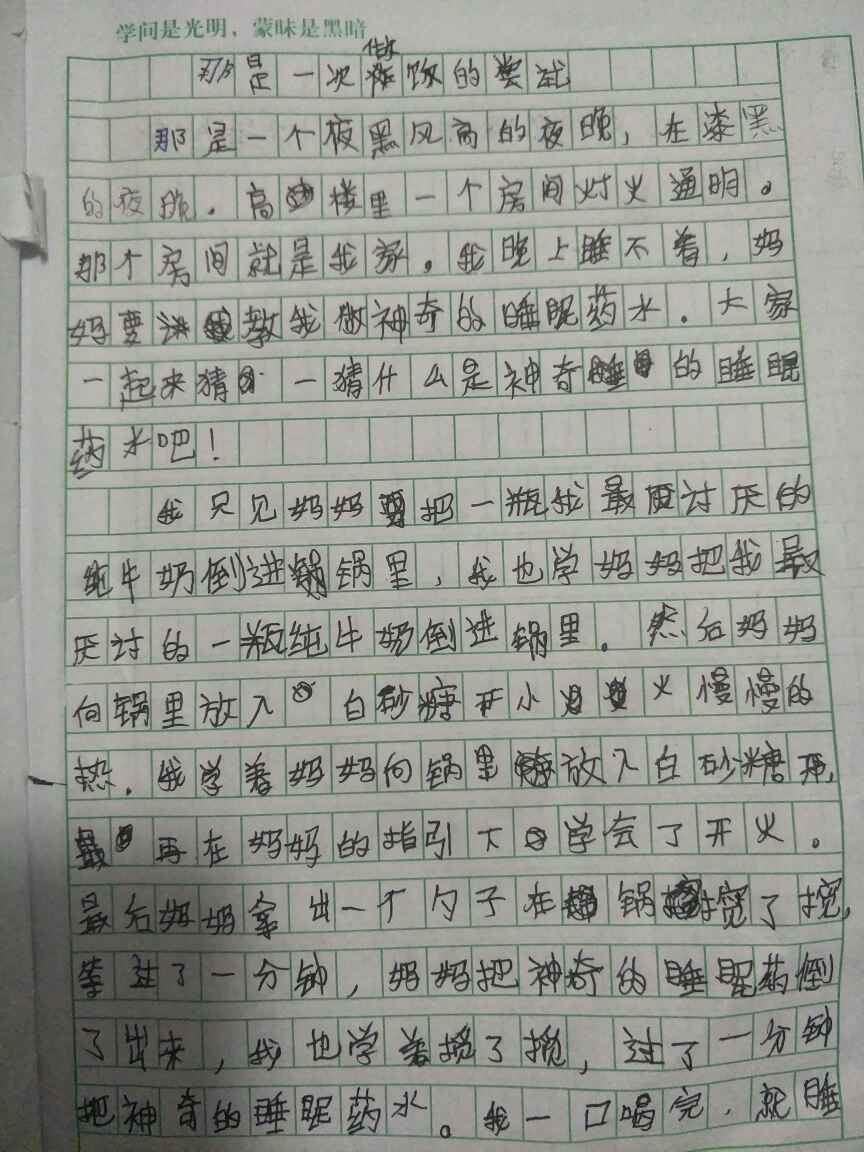 学问是光明，蒙昧是黑暗
那是一次做饭的尝试
那是一个夜黑风高的夜晚，在漆黑
的夜晚。高楼里一个房间灯火通明。
那个房间就是我家。我晚上睡不着，妈
妈要教我做神奇的睡眠药水。大家
一起来猜一猜什么是神奇的睡眠
药水吧！
我只见妈妈把一瓶我最讨厌的
纯牛奶倒进锅里，我也学妈妈把我最
厌讨的一瓶纯牛奶倒进锅里。然后妈妈
向锅里放入白砂糖开小火慢慢的
热。我学着妈妈向锅里放入白砂糖，
再在妈妈的指引下学会了开火。
最后妈妈拿出一个勺子在锅搅了搅，
过了一分钟，妈妈把神奇的睡眠药倒
了出来，我也学着搅了搅，过了一分钟
把神奇的睡眠药水。我一口喝完，就睡